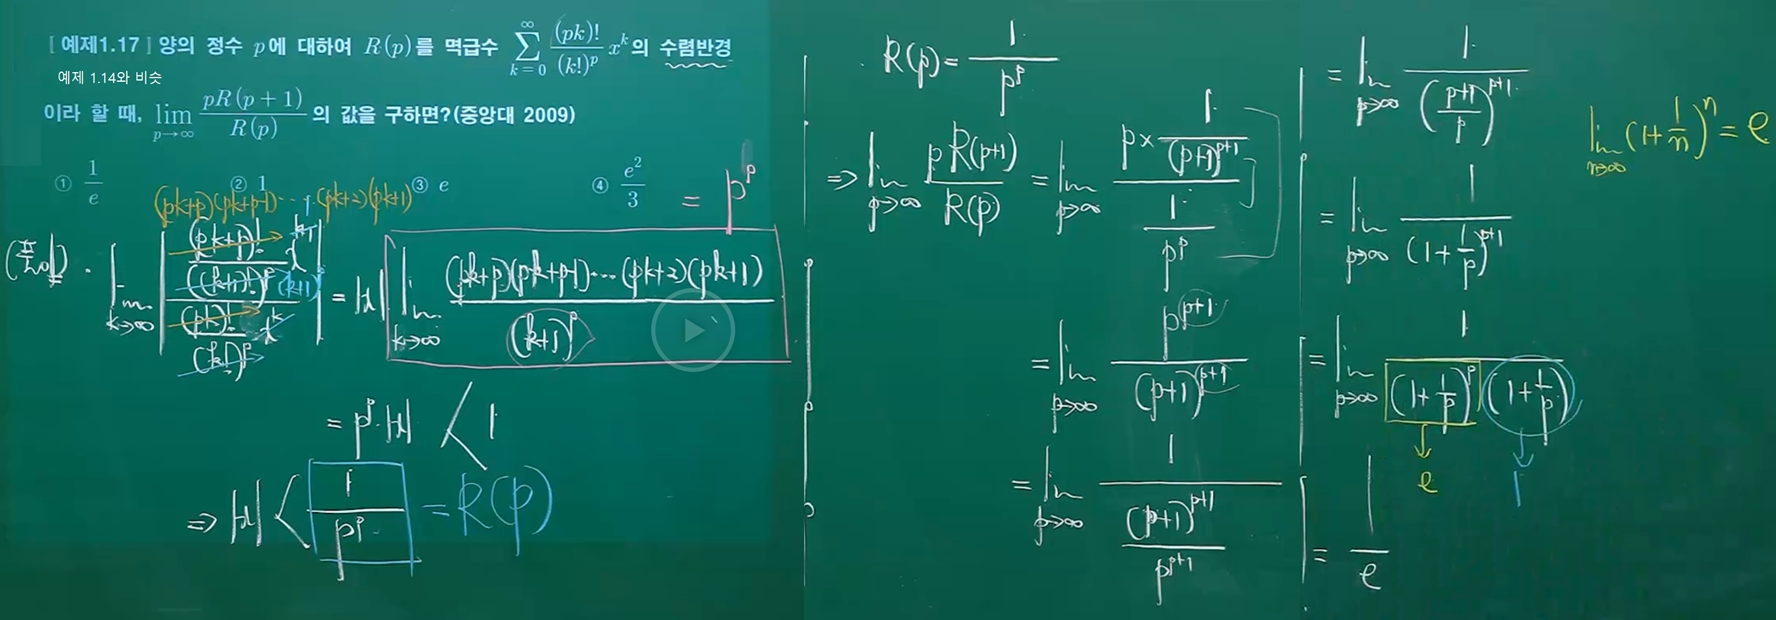 [예제1.17] 양의 정수 p에 대하여 R(p)를 멱급수 \sum_{k=0}^{\infty} \frac{(pk)!}{(k!)^p} x^k의 수렴반경
예제 1.14와 비슷
이라 할 때, \lim_{p→∞} \frac{pR(p+1)}{R(p)}의 값을 구하면?(중앙대 2009)
① \frac{1}{e} ② 1 ③ e ④ \frac{e^2}{3}
(pk+p)(pk+p-1)⋯(pk+2)(pk+1)
= p^p
(풀이). \lim_{k→∞} | \frac{\frac{(pk+p)!}{((k+1)!)^p} x^{k+1}}{\frac{(pk)!}{(k!)^p} x^k} | = |x| \lim_{k→∞} \frac{(pk+p)(pk+p-1)⋯(pk+2)(pk+1)}{(k+1)^p}
(k+1)^p
= p^p·|x| < 1
⇒ |x| < \frac{1}{p^p} = R(p)
R(p) = \frac{1}{p^p}
⇒ \lim_{p→∞} \frac{pR(p+1)}{R(p)} = \lim_{p→∞} \frac{p × \frac{1}{(p+1)^{p+1}}}{\frac{1}{p^p}}
= \lim_{p→∞} \frac{p^{p+1}}{(p+1)^{p+1}}
= \lim_{p→∞} \frac{1}{\frac{(p+1)^{p+1}}{p^{p+1}}}
= \lim_{p→∞} \frac{1}{(\frac{p+1}{p})^{p+1}}
\lim_{n→∞} (1+\frac{1}{n})^n = e
= \lim_{p→∞} \frac{1}{(1+\frac{1}{p})^{p+1}}
= \lim_{p→∞} \frac{1}{(1+\frac{1}{p})^p (1+\frac{1}{p})}
↓ ↓
e 1
= \frac{1}{e}